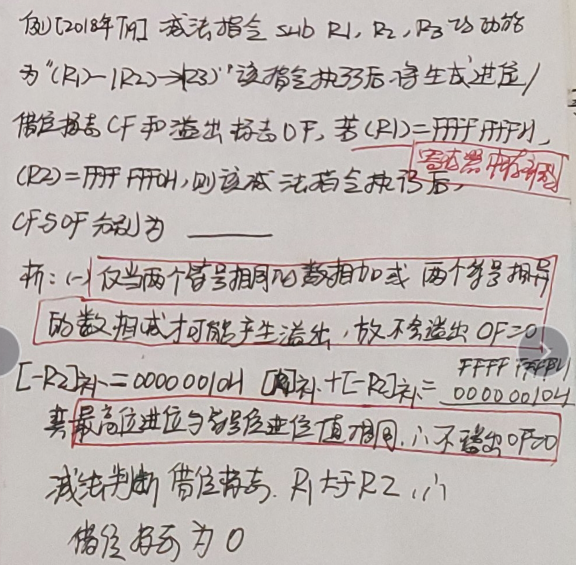 例[2018年7月] 减法指令 sub R1, R2, R3 功能
为"(R1)-(R2)→R3" 该指令执行后将生成进位/
借位标志 CF 和溢出标志OF, 若(R1)=FFFF FFFFH,
(R2)=FFFF FFF0H, 则该减法指令执行后,
CF与OF分别为 ____
析:(一)仅当两个符号相同的数相加或 两个符号相异
的数相减才可能产生溢出,故不会溢出 OF=0
[-R2]补=00000010H [R1]补+[-R2]补= FFFF FFFFH
00000010H
最高位进位与符号位进位值相同,∴不溢出OF=0
减法判断 借位标志. R1大于R2, ∴
借位标志为0